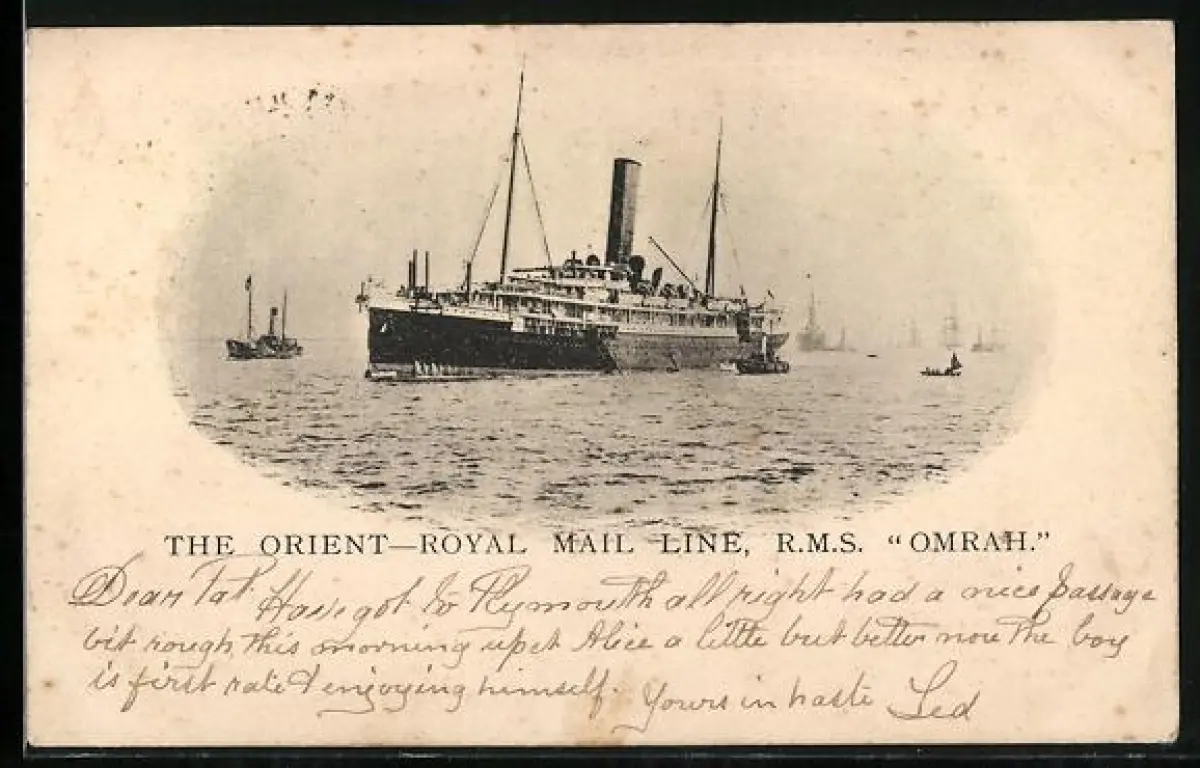 THE ORIENT—ROYAL MAIL LINE, R.M.S. "OMRAH."
Dear Tat. Have got to Plymouth all right had a nice passage
bit rough this morning upset Alice a little but better now The boy
is first rate & enjoying himself. Yours in haste